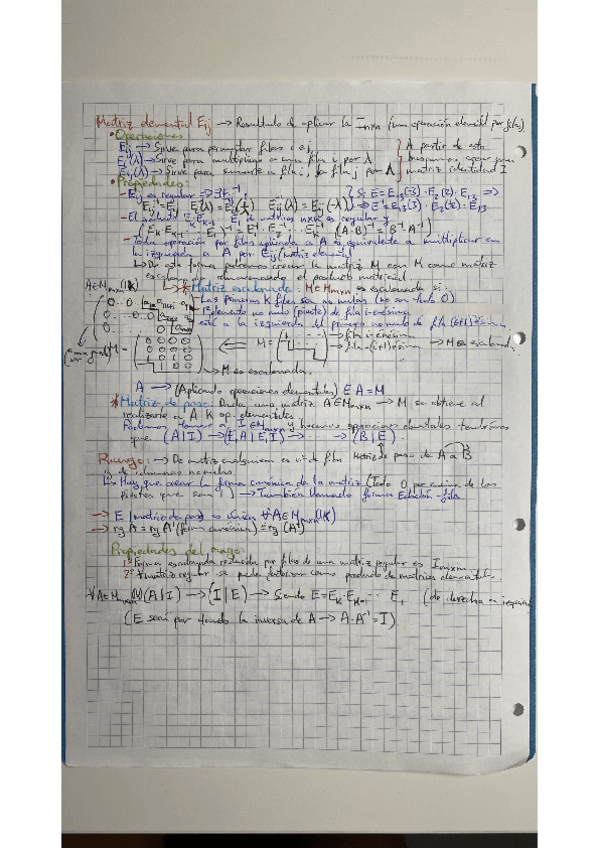 Matriz elemental Eij → Resultado de aplicar la Inxn (una operación elemental por filas)
• Operaciones:
Eij → Sirve para permutar filas i e j. A partir de esta
Ei(λ) → Sirve para multiplicar a una fila i por λ
Eij(λ) → Sirve para sumarle a fila i, la fila j por λ matriz identidad I
• Propiedades:
- Eij es regular → ∃E⁻¹,
- El producto Ek Ek-1 ... E1 de matrices nxn es regular y
(Ek Ek-1 ... E1)⁻¹ = E1⁻¹ · E2⁻¹ ... Ek⁻¹ (A·B)⁻¹ = B⁻¹·A⁻¹
- Toda operación por filas aplicada a A es equivalente a multiplicar en
la izquierda a A por Eij (matriz elemental)
↳ De esta forma podremos crear la matriz M con M como matriz
escalonada del producto matricial.
* Matriz escalonada: M∈Mmxn es escalonada si:
- Las primeras K filas son no nulas (no son todo 0)
- 1º elemento no nulo (pivote) de fila i-ésima
está a la izquierda del primero no nulo de fila (i+1)-ésima
M = fila i-ésima
fila (i+1)-ésima → M es escalonada
→ M es escalonada.
A → (Aplicando operaciones elementales) E A = M
* Matriz de paso: Dada una matriz A∈Mmxn → M se obtiene al
realizarle a A K op. elementales
Podemos tomar a I∈Mmxm y hacemos operaciones elementales tendremos
que (A|I) → (E1A|E1I) → ... → (B|E)
Matriz de paso de A a B
Rango: → De matriz cualquiera es nº de filas
o de columnas no nulas
↳ Hay que crear la forma canónica de la matriz (Todo 0 por encima de los
pivotes que sean 1) → También llamado forma Echelon-fila
→ E (matriz de paso) es única ∀A∈Mmxn(K)
→ rg A = rg A' (forma canónica) = rg (Aᵗ)
Propiedades del rango:
1º Forma escalonada reducida por filas de una matriz regular es Inxn
2º ∀ matriz regular se puede factorizar como producto de matrices elementales.
(A|I) → (I|E) → Siendo E = Ek·Ek-1 ... E1 (de derecha a izquierda)
(E será por tanto la inversa de A → A·A⁻¹ = I)